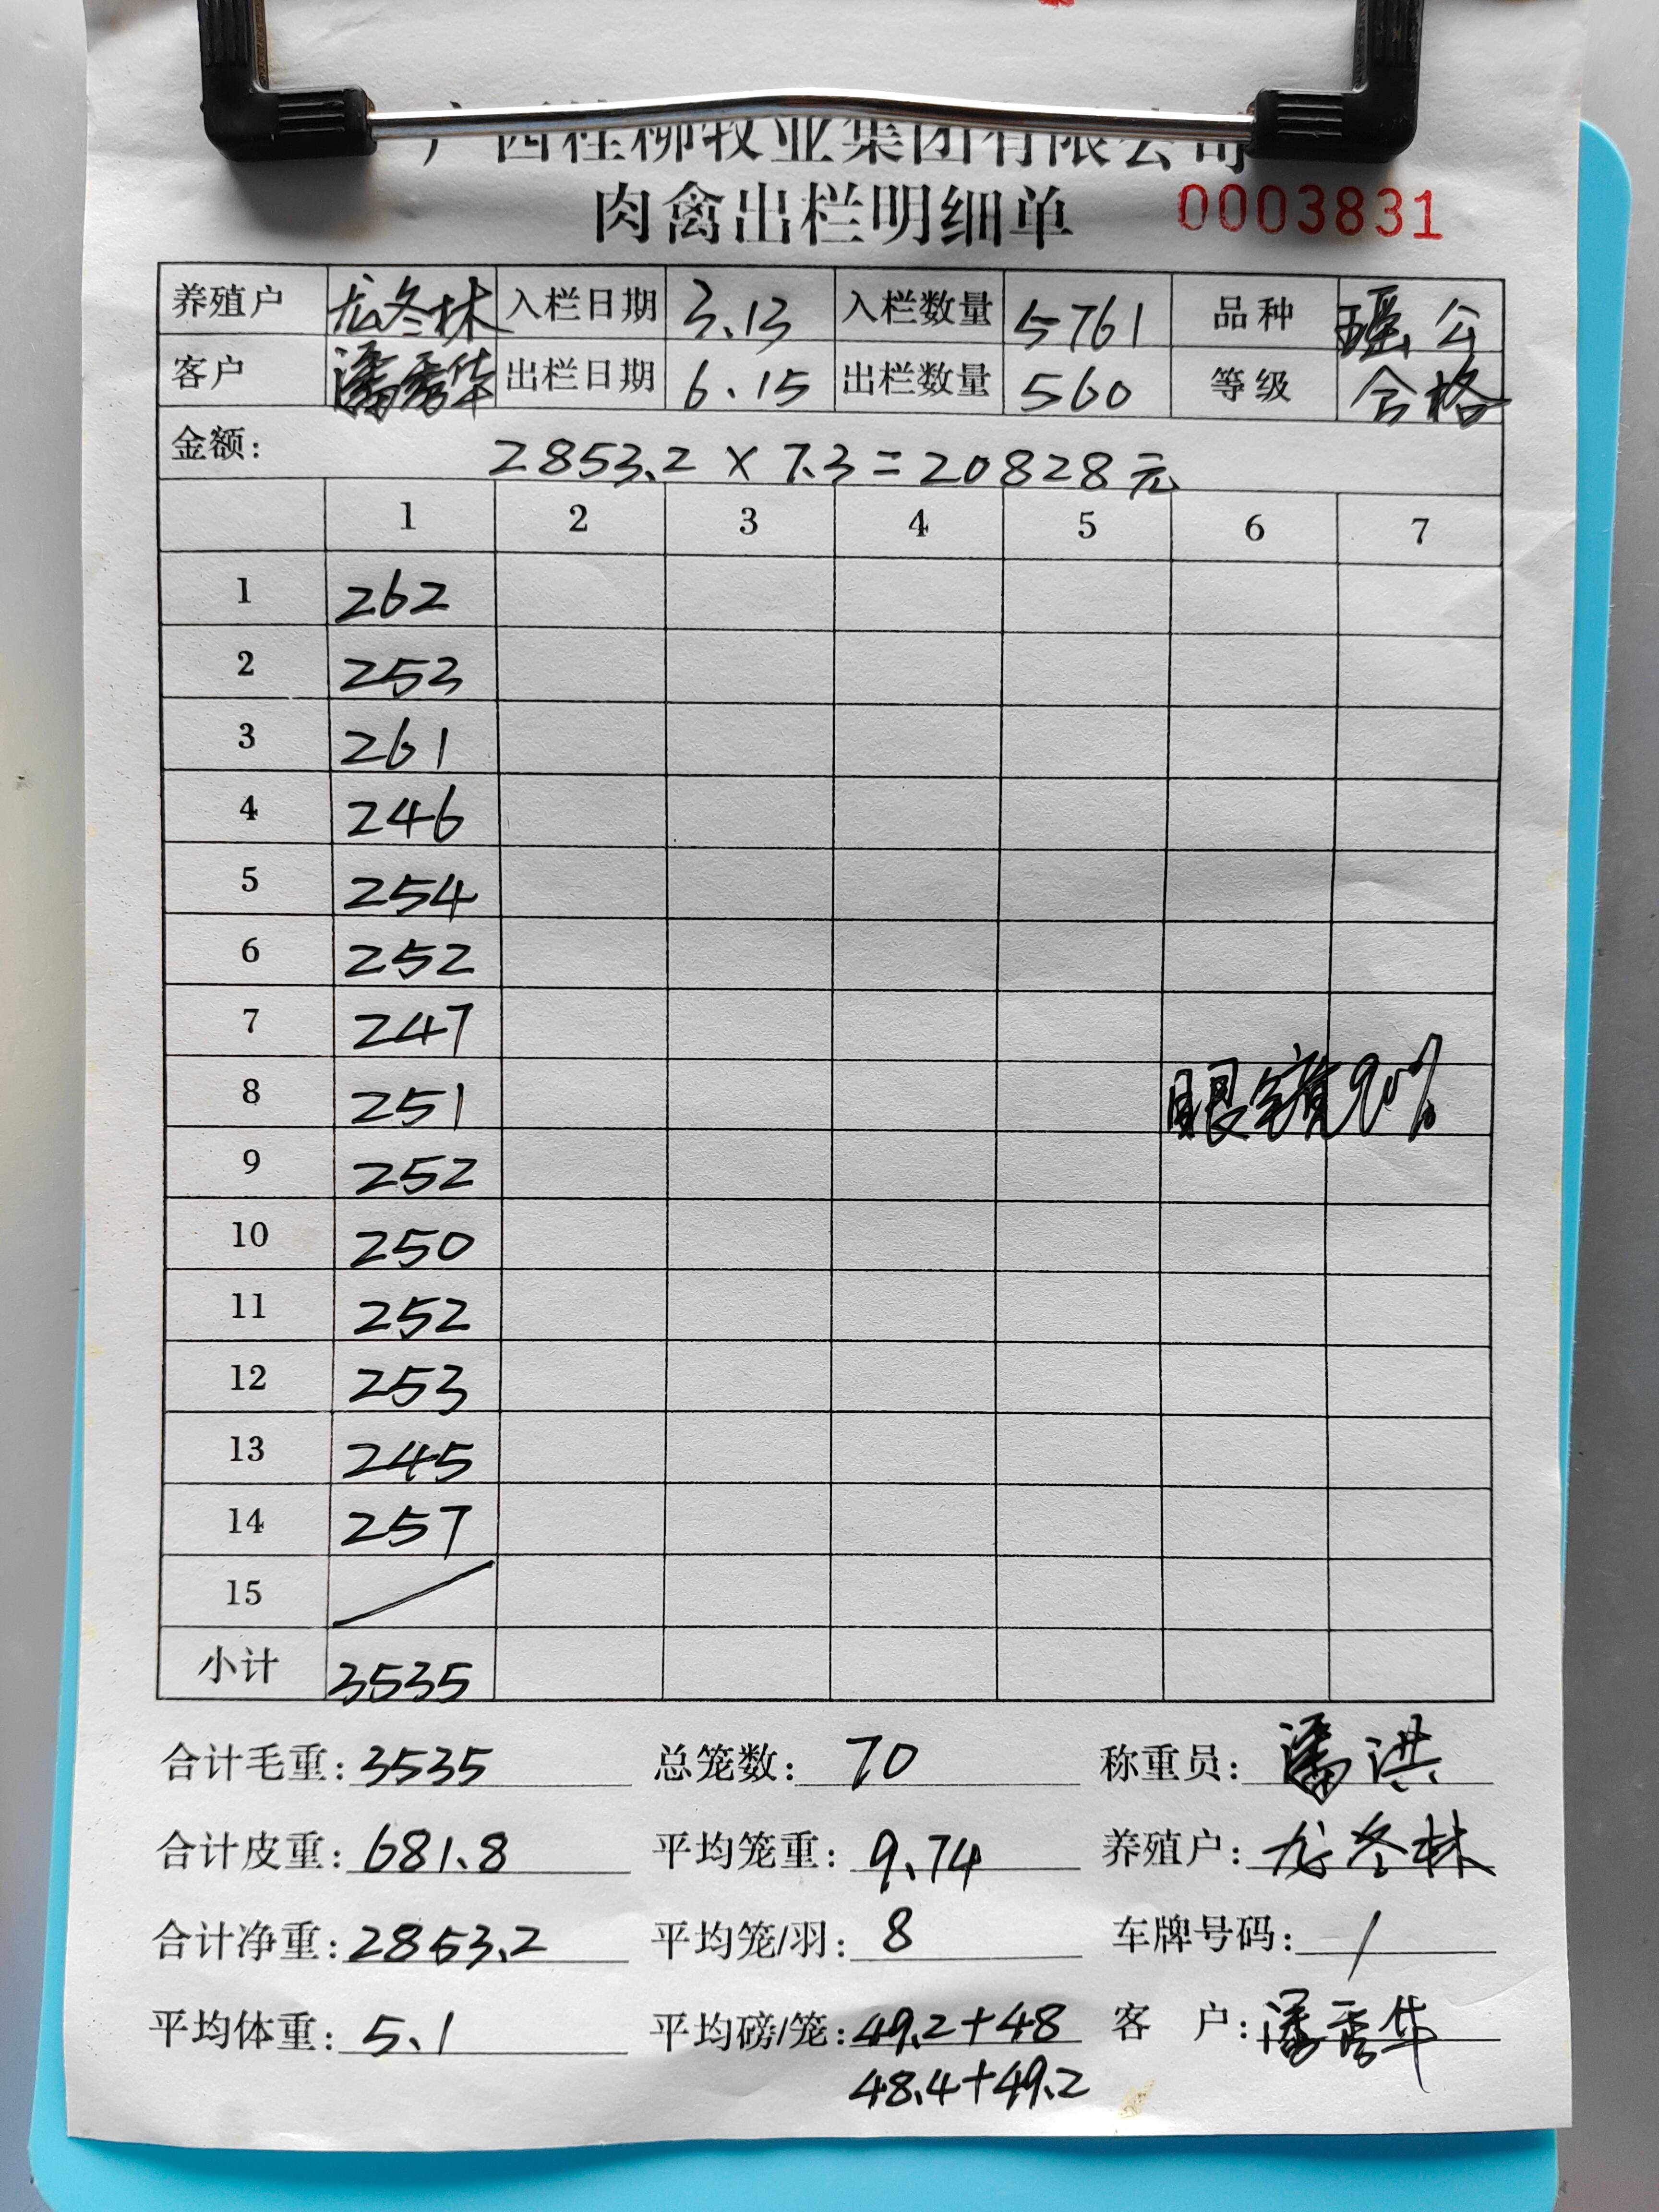 广西桂柳牧业集团有限公司
肉禽出栏明细单 0003831
养殖户 龙冬林 入栏日期 3.13 入栏数量 5761 品种 瑶公
客户 潘秀华 出栏日期 6.15 出栏数量 560 等级 合格
金额: 2853.2 × 7.3 = 20828元
1 2 3 4 5 6 7
1 262
2 253
3 261
4 246
5 254
6 252
7 247
8 251 眼镜90%
9 252
10 250
11 252
12 253
13 245
14 257
15 /
小计 3535
合计毛重: 3535 总笼数: 70 称重员: 潘洪
合计皮重: 681.8 平均笼重: 9.74 养殖户: 龙冬林
合计净重: 2853.2 平均笼/羽: 8 车牌号码: /
平均体重: 5.1 平均磅/笼: 49.2+48 客户: 潘秀华
48.4+49.2